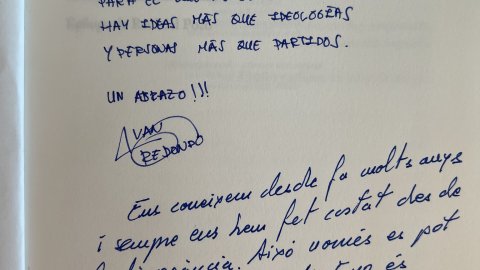 PARA EL
HAY IDEAS MÁS QUE IDEOLOGÍAS
Y PERSONAS MÁS QUE PARTIDOS.
UN ABRAZO!!!
IVAN
REDONDO
Ens coneixem desde fa molts anys
i sempre ens hem fet costat des de
Això només es pot
és